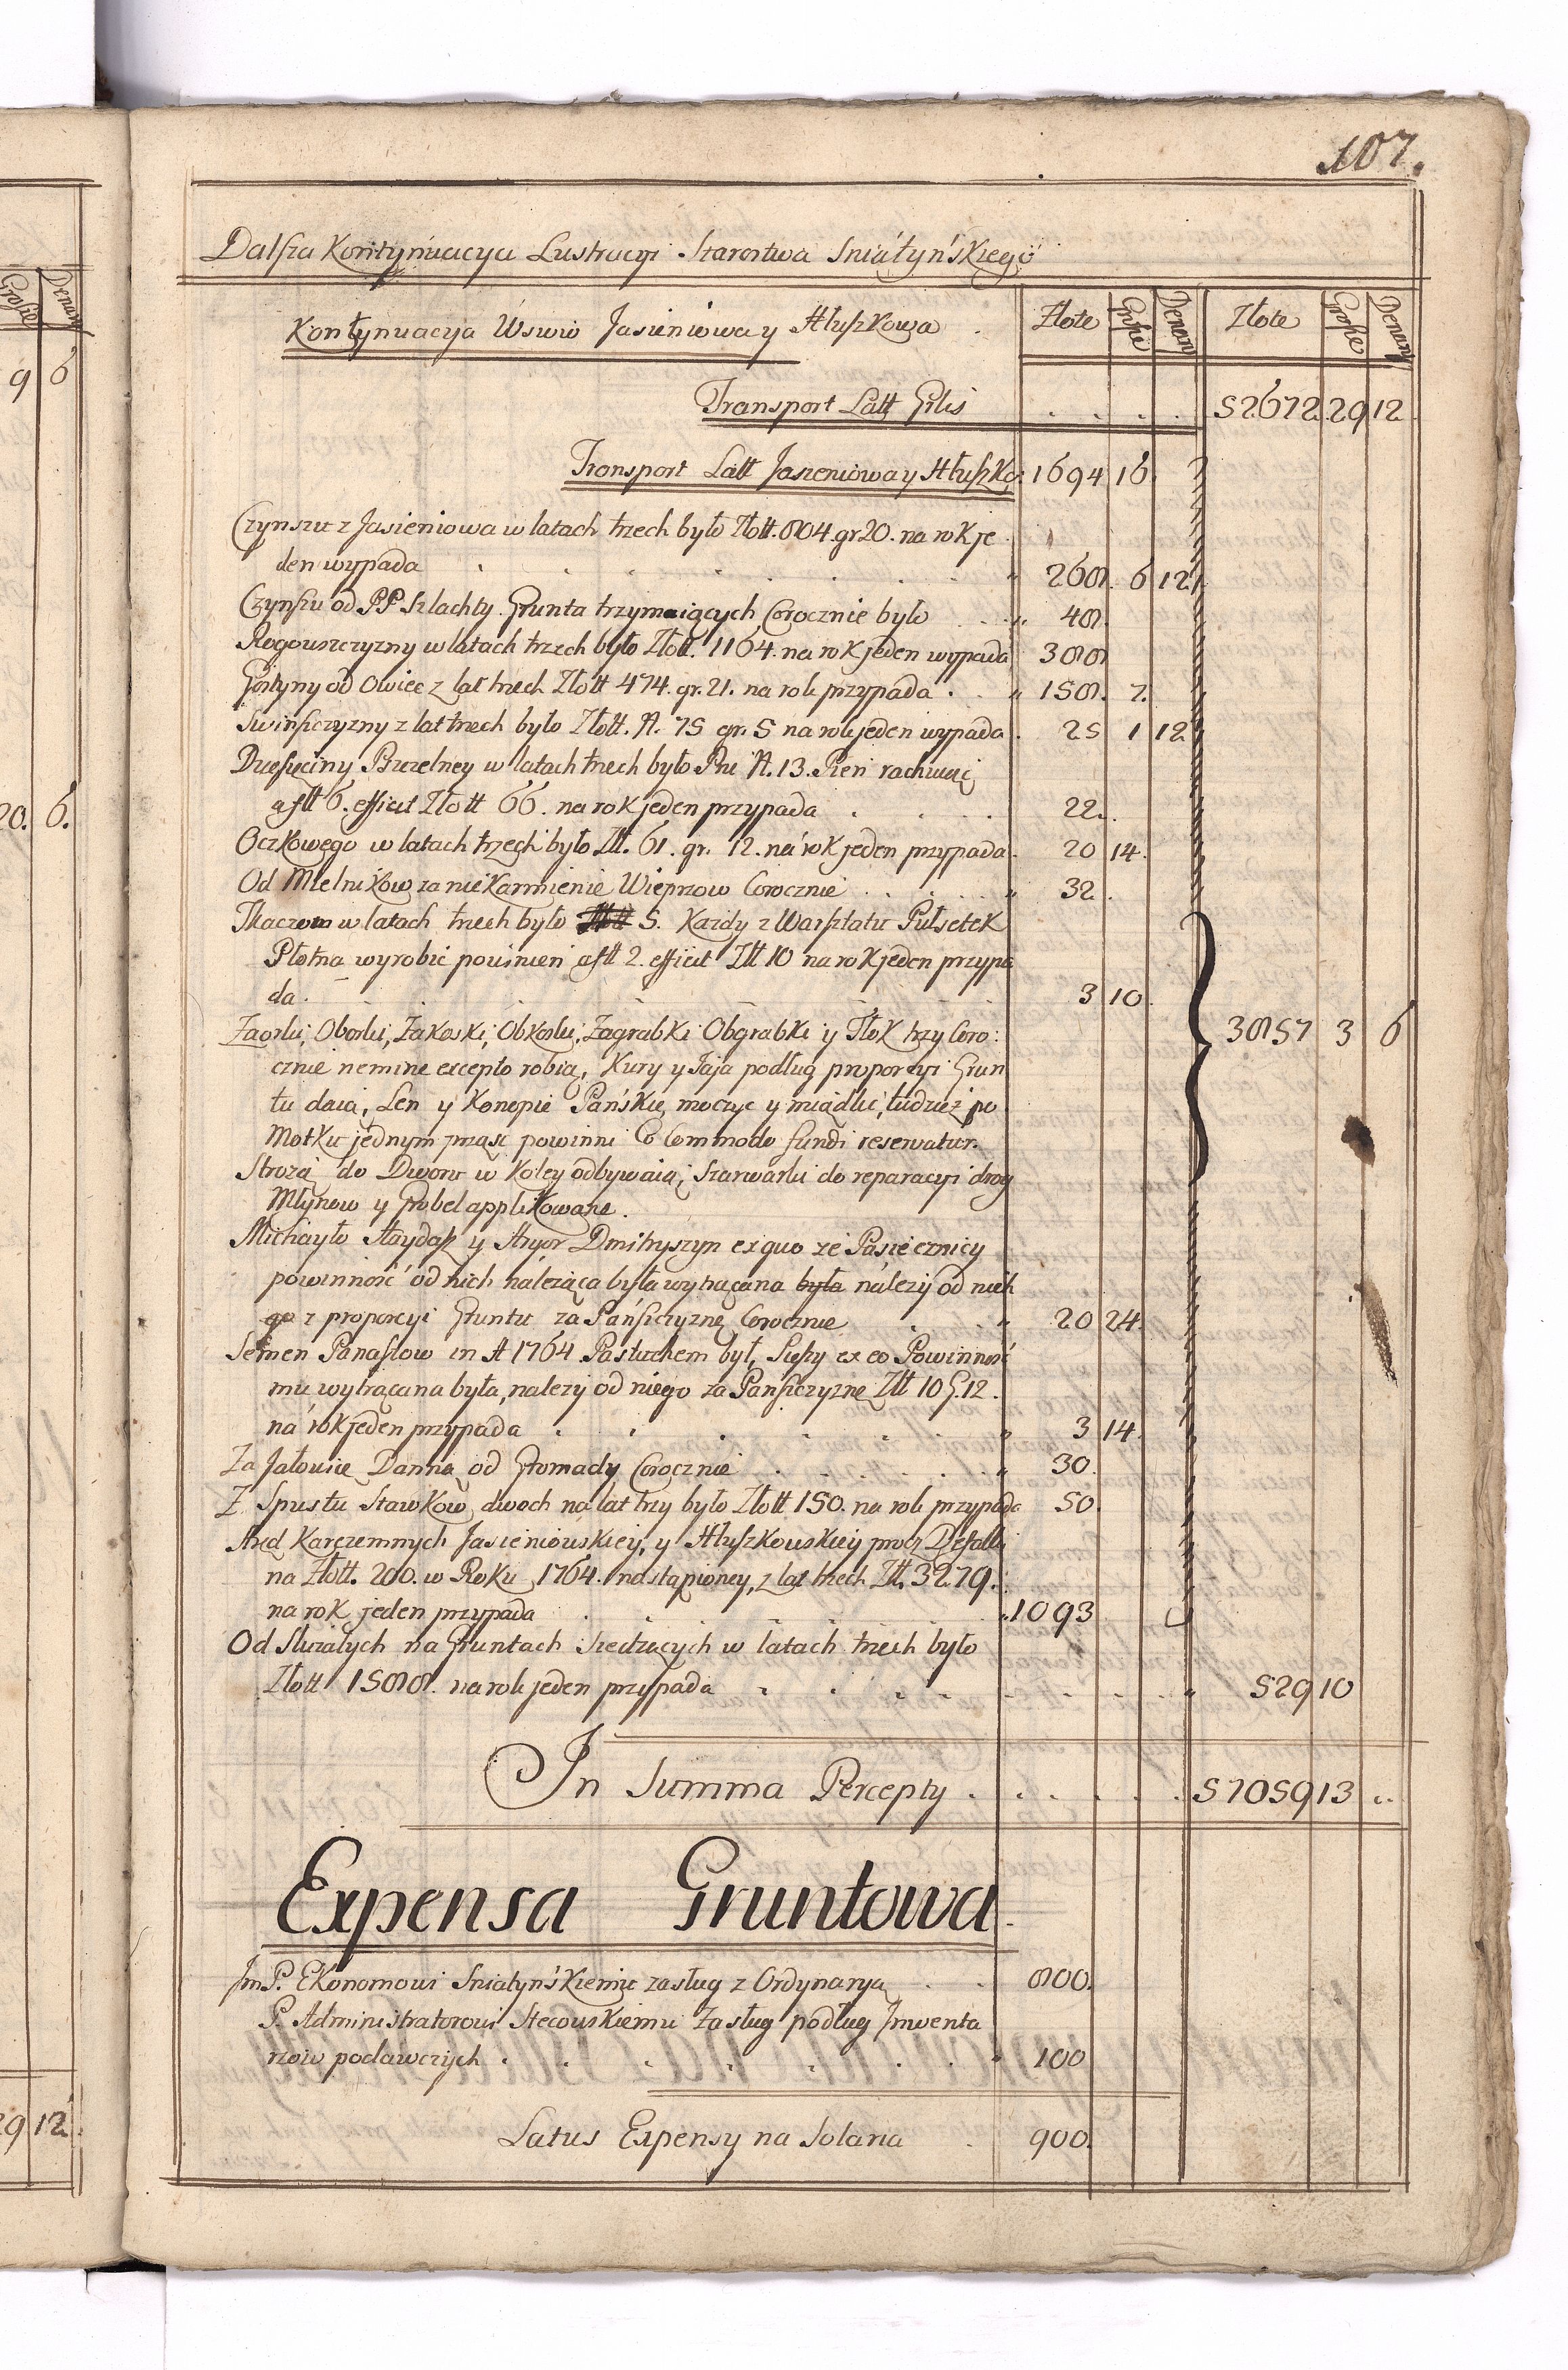 107.
Dalsza Kontynuacya Lustracyi Starostwa Sniatyńskiego
Kontynuacyja Wsiów Jasieniowa y Hłuszkowa . Złote Grosze Denary Złote Grosze Denary
Transport Latt Grlis . . . . 52672 29 12
Transport Latt Jasieniowa y Hłuszko: 1694 16.
Czynszu z Jasieniowa w latach trzech było Złott. 804. gr 20. na rok je
den wypada . . . . 268. 6 12
Czynszu od PP Szlachty Grunta trzymaiących Corocznie było . . 48.
Rogouszczyzny w latach trzech było Złott. 1164. na rok jeden wypada 388
Gostyny od Owiec z lat trzech Złott 474. gr. 21. na rok przypada . . 158. 7.
Swinszczyzny z lat trzech było Złott. N. 75 gr. 5 na rok jeden wypada . 25 1 12
Dziesięciny Pszczelney w latach trzech było Pni N. 13. Pień rachuiąc
a fltt 6. efficit Złott 66. na rok jeden przypada . . . 22.
Oczkowego w latach trzech było Złt. 61. gr. 12. na rok jeden przypada . 20 14.
Od Mielnikow za nie Karmienie Wieprzow Corocznie . . . 32.
Tkaczom w latach trzech było 5. Kazdy z Warsztatu Pułsetek
Płotna wyrobic powinien a fltt 2. efficit Złt 10 na rok jeden przypa
da . . . . 3 10.
Zaorki, Oborki, Zakoski, Obkoski, Zagrabki Obgrabki y Tłok trzy Coro:
cznie nemine excepto robią, Kury y Jaja podług proporcyi Grun
tu daią, Len y Konopie Pańskie moczyc y miądlic, tudzież po
Motku jednym prząsc powinni Co Commodo fundi reservatur. 3857 3 6
Strozą do Dworu w Koley odbywaią, Szarwarki do reparacyi drog
Młynow y Grobel applikowane.
Michayło Haydasz y Hryor Dmitryszyn ex quo ze Pasiecznicy
powinność od nich należąca była wytrącana była należy od niek
go z proporcyi Gruntu za Pańszczyznę Corocznie . . 20 24.
Semen Panasłow in A 1764 Pastuchem był, Sieszy ex eo Powinność
mu wytrącana była, nalezy od niego za Panszczyznę Złt 10 G. 12.
na rok jeden przypada . . . . 3 14.
Za Jałowicę Danną od Gromady Corocznie . . . . 30.
Z Spustu Stawkow dwoch na lat trzy było Złott 150. na rok przypada 50.
Ared Karczemnych Jasieniowskiey, y Hłuszkowskiey Defalki
na Złott. 200. w Roku 1764. nastąpioney, z lat trzech Złt. 3279.
na rok jeden przypada . . . . 1093
Od Służałych na Gruntach Siedzących w latach trzech było
Złott 1588. na rok jeden przypada . . . . 529 10
In Summa Percepty . . . . 57059 13 ..
Expensa Gruntowa
Jm P. Ekonomowi Sniatyńskiemu zasług z Ordynaryą . . 800.
P. Administratorowi Stecowskiemu Zasług podług Jnwenta
rzow podawczych . . . . 100
Latus Expensy na Solaria . 900.
9 6
20. 6.
29 12
Grosze Denary